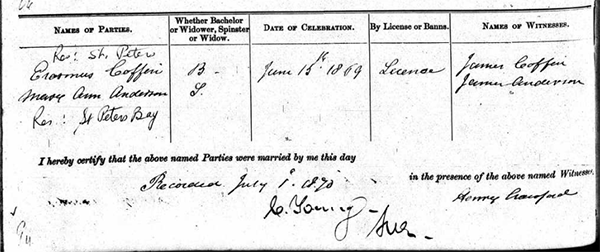 NAMES OF PARTIES. Whether Bachelor or Widower, Spinster or Widow. DATE OF CELEBRATION. By License or Banns. NAMES OF WITNESSES.
Res: St. Peters
Erasmus Coffin B - June 15th 1869 License James Coffin
Mary Ann Anderson S. James Anderson
Res: St Peters Bay
I hereby certify that the above named Parties were married by me this day
in the presence of the above named Witnesses,
Recorded July 1st 1870 Henry Crawford
C. Young